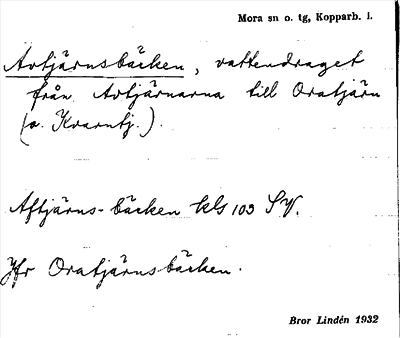 Mora sn o. tg, Kopparb. l.
Avtjärnsbäcken, vattendraget
från Avtjärnarna till Oratjärn
(o. Kvarntj.).
Aftjärns-bäcken kls 103 SV.
Jfr Oratjärnsbäcken.
Bror Lindén 1932